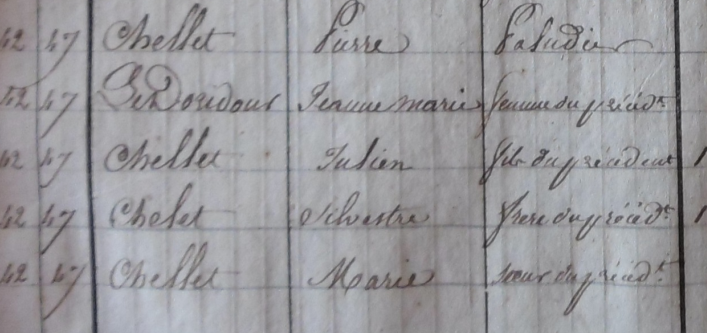 42 47 Chellet Pierre Paludier
42 47 Le Doridour Jeanne marie femme du précédt
42 47 Chellet Julien fils du précédent 1
42 47 Chelet Silvestre frere du précédt 1
42 47 Chellet Marie sœur du précédt